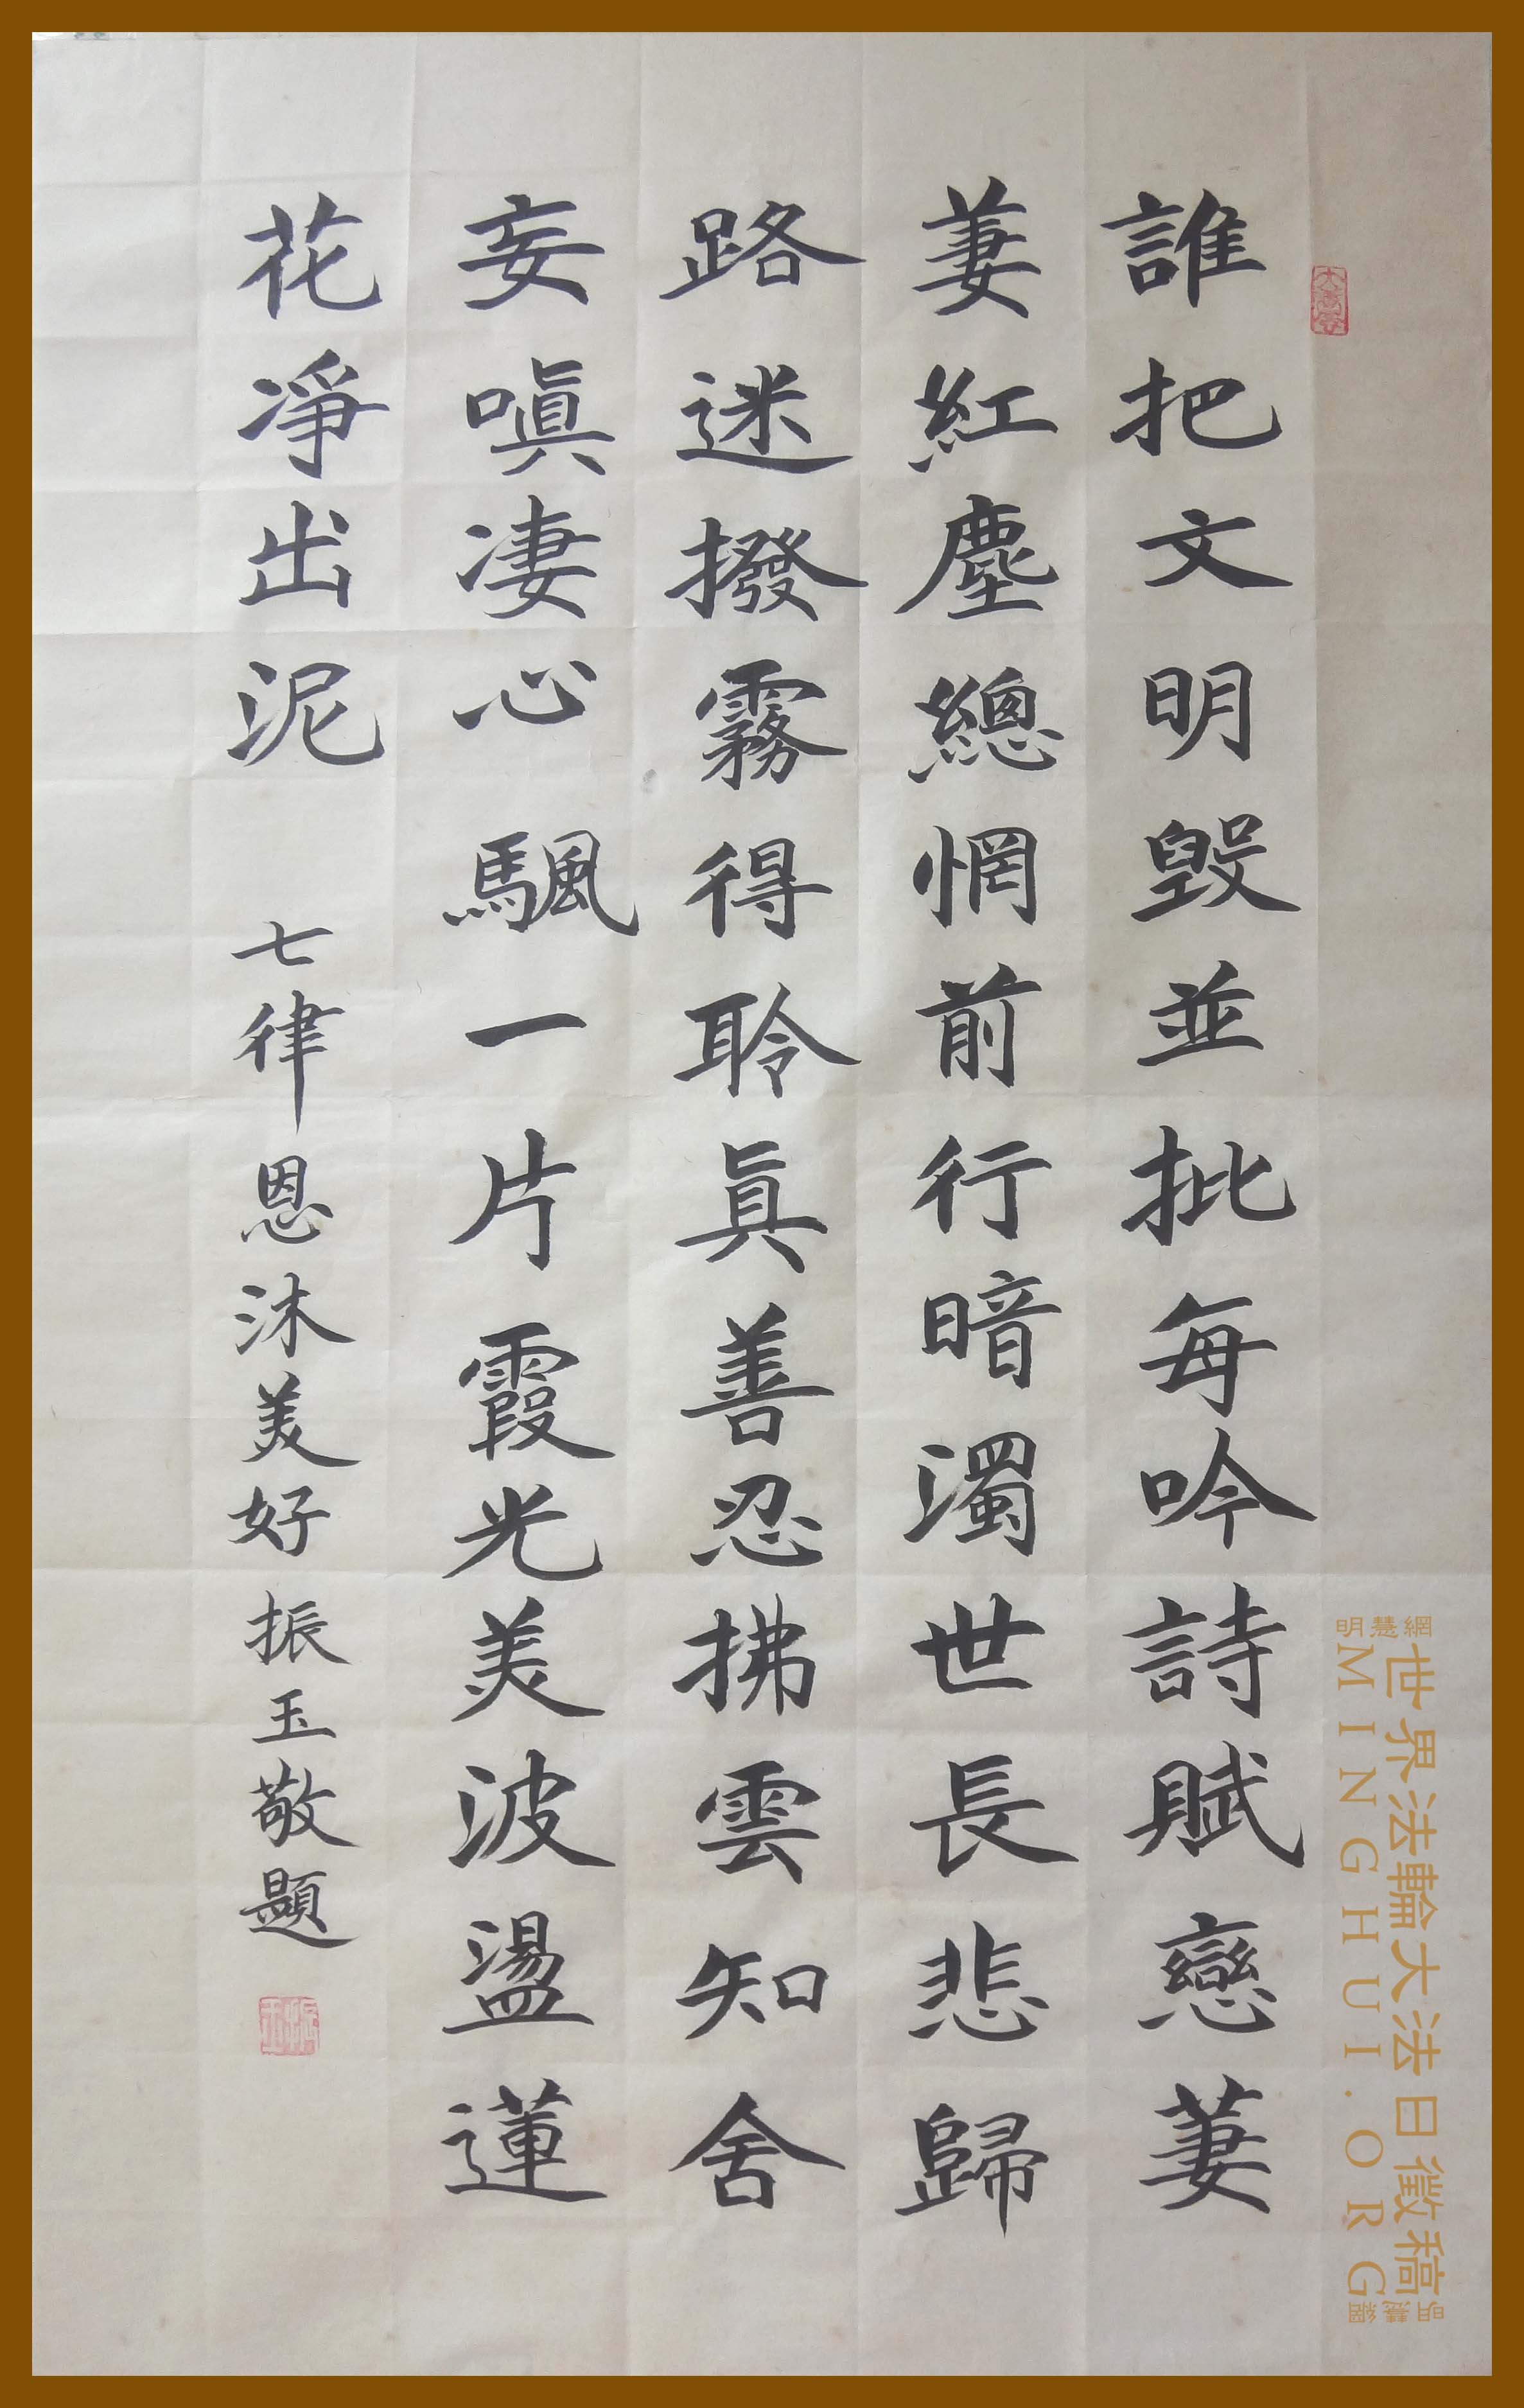 誰把文明毀並批每吟詩賦戀萋
萋紅塵總惘前行暗濁世長悲歸
路迷撥霧得聆眞善忍拂雲知舍
妄嗔凄心颿一片霞光美波盪蓮
花凈出泥 七律恩沐美好振玉敬題
明慧網
世界法輪大法日徵稿
MINGHUI.ORG
明慧網